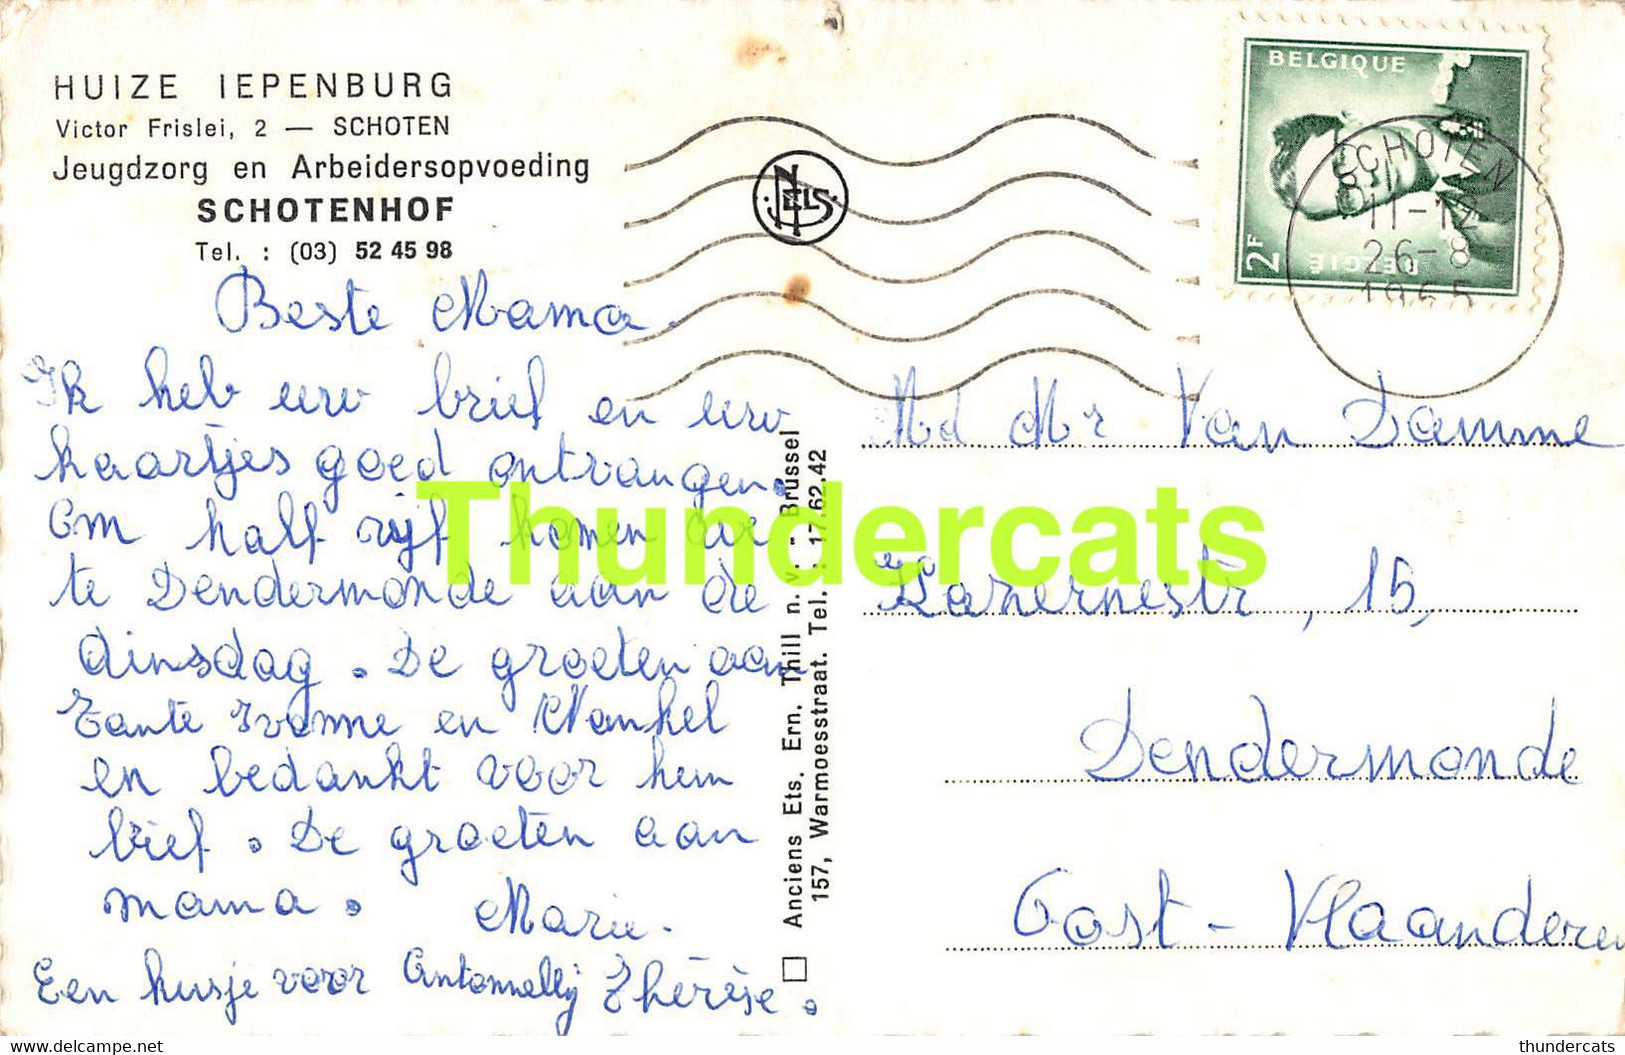 HUIZE IEPENBURG
Victor Frislei, 2 — SCHOTEN
Jeugdzorg en Arbeidersopvoeding
SCHOTENHOF
Tel. : (03) 52 45 98
Beste Mama.
Ik heb uw brief en uw
kaartjes goed ontvangen.
Om half vijf komen we
te Dendermonde aan de
dinsdag. De groeten aan
Tante Ivonne en Nonkel
en bedankt voor hem
brief. De groeten aan
mama. Marie.
Een kusje voor Antonnelly Thérèse.
NELS
Anciens Ets. Ern. Thill n. v. - Brussel
157, Warmoesstraat. Tel. : 17.62.42
BELGIQUE
2F
BELGIË
SCHOTEN
11-12
26-8
1965
Md Mr Van Damme
Kazernestr, 15,
Dendermonde
Oost-Vlaanderen
Thundercats
www.delcampe.net
thundercats